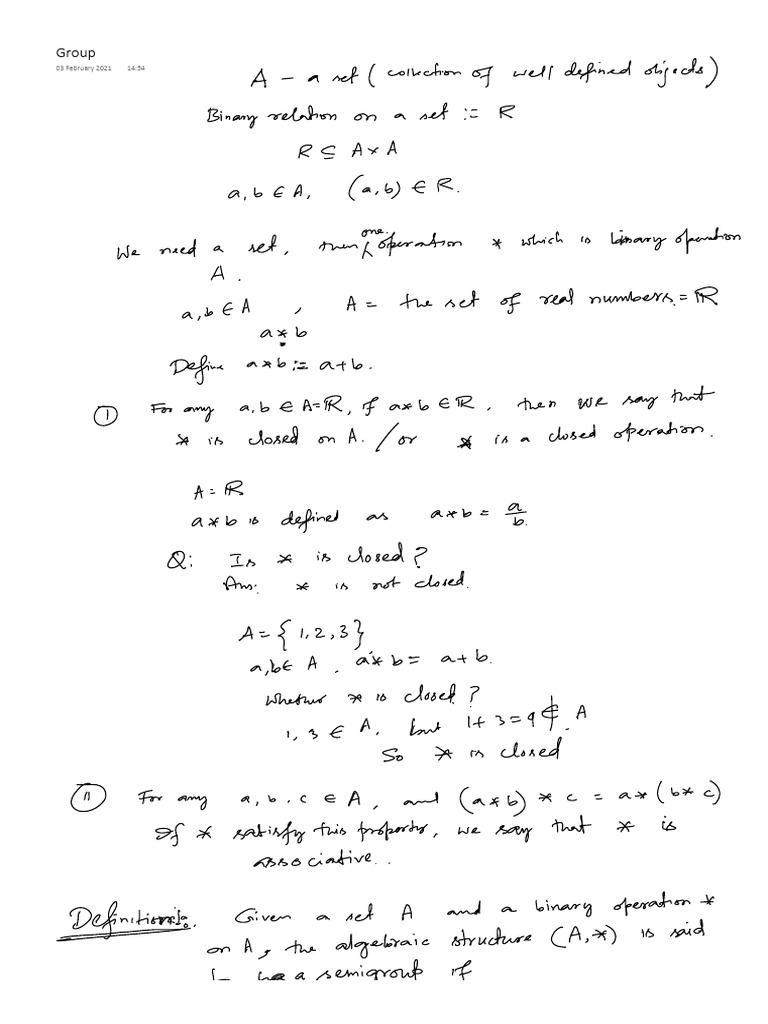 Group
03 February 2021 14:54
A – a set ( collection of well defined objects)
Binary relation on a set := R
R ⊆ A×A
a, b ∈ A, (a, b) ∈ R.
one.
We need a set, then operation * which is binary operation
A.
a, b ∈ A , A = the set of real numbers. = ℝ
a * b
Define a*b := a+b.
① For any a, b ∈ A=ℝ, if a*b ∈ ℝ, then we say that
* is closed on A. / or * is a closed operation.
A = ℝ
a*b is defined as a*b = a/b.
Q: Is * is closed?
Ans: * is not closed.
A = {1, 2, 3}
a, b ∈ A , a*b = a+b.
Whether * is closed?
1, 3 ∈ A, but 1+3=4 ∉ A.
So * is closed
⑪ For any a, b, c ∈ A, and (a*b) * c = a*(b*c)
If * satisfy this property, we say that * is
associative..
Definition:. Given a set A and a binary operation *
on A, the algebraic structure (A,*) is said
a semigroup if